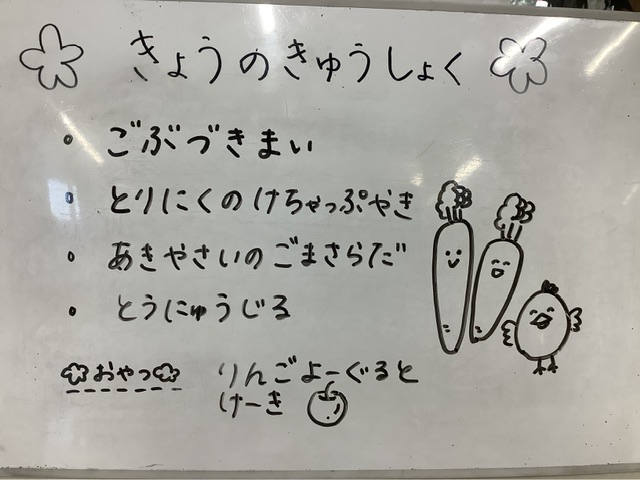 きょうのきゅうしょく
・ごぶづきまい
・とりにくのけちゃっぷやき
・あきやさいのごまさらだ
・とうにゅうじる
おやつ りんごよーぐると
けーき